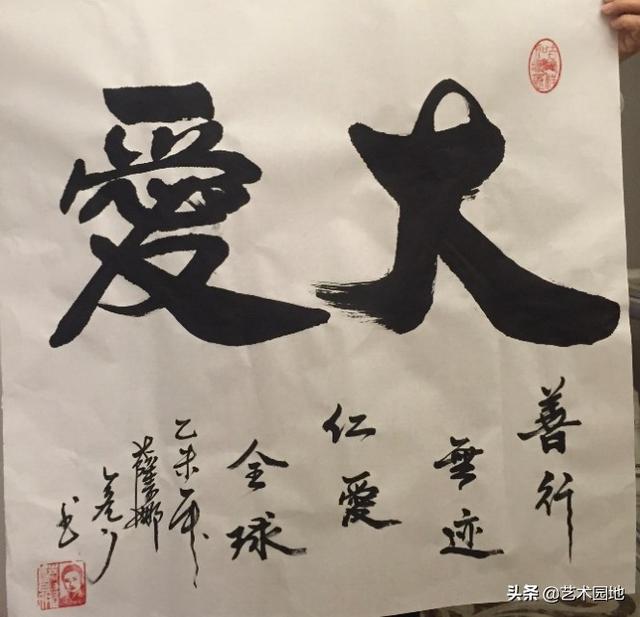 大愛
善行
無迹
仁愛
全球
乙未年
薩娜
书
头条 @艺术园地